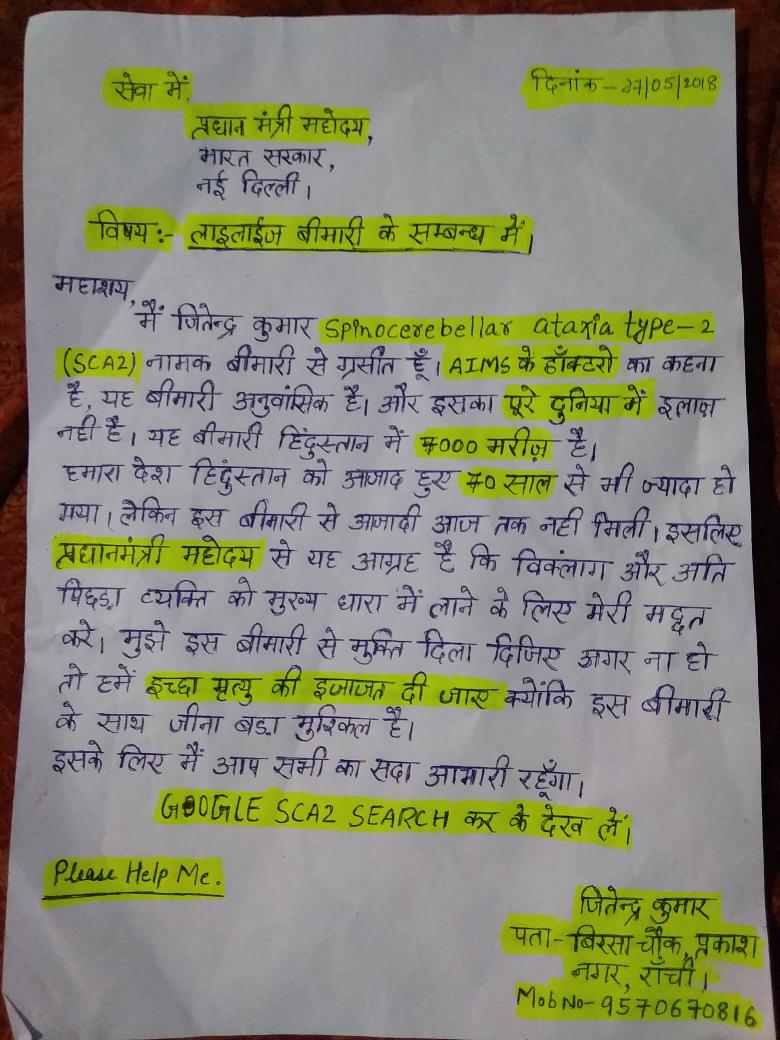 सेवा में,
दिनांक - 27/05/2018
प्रधान मंत्री महोदय,
भारत सरकार,
नई दिल्ली।
विषय:- लाइलाईज बीमारी के सम्बन्ध में।
महाशय,
मैं जितेन्द्र कुमार Spinocerebellar ataxia type-2
(SCA2) नामक बीमारी से ग्रसीत हूँ। AIMS के डॉक्टरो का कहना
है, यह बीमारी अनुवांसिक है। और इसका पूरे दुनिया में इलाज़
नही है। यह बीमारी हिंदुस्तान में 7000 मरीज़ है।
हमारा देश हिंदुस्तान को आजाद हुए 70 साल से भी ज्यादा हो
गया। लेकिन इस बीमारी से आजादी आज तक नही मिली। इसलिए
प्रधानमंत्री महोदय से यह आग्रह है कि विकलांग और अति
पिछड़ा व्यक्ति को मुख्य धारा में लाने के लिए मेरी मद्दत
करे। मुझे इस बीमारी से मुक्ति दिला दिजिए अगर ना हो
तो हमें इच्छा मृत्यु की इजाजत दी जाए क्योंकि इस बीमारी
के साथ जीना बड़ा मुश्किल है।
इसके लिए मैं आप सभी का सदा आभारी रहूँगा।
GOOGLE SCA2 SEARCH कर के देख लें।
Please Help Me.
जितेन्द्र कुमार
पता- बिरसा चौक, प्रकाश
नगर, राँची।
Mob No- 9570670816